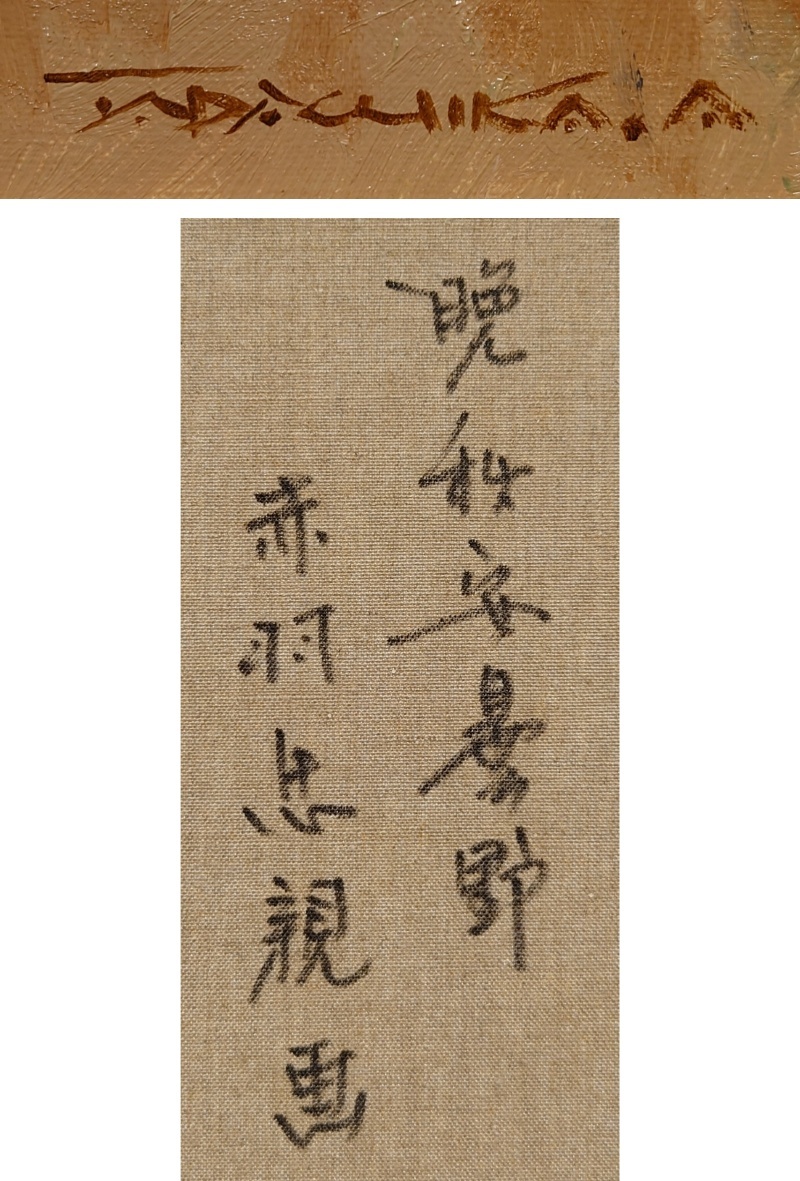 TADACHIKA.A
晩秋安曇野
赤羽忠親画